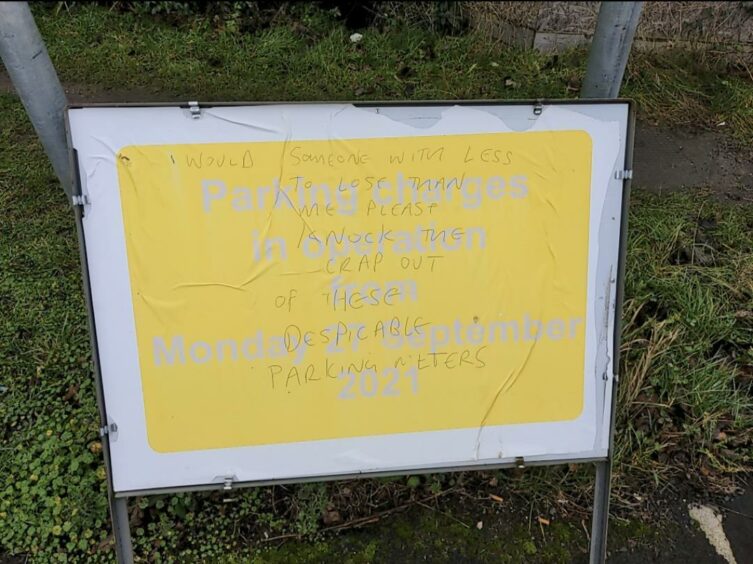 WOULD SOMEONE WITH LESS
TO LOSE THAN
Parking charges
ME PLEASE
KNOCK THE
in operation
CRAP OUT
from
OF THESE
DESPICABLE
Monday 27 September
PARKING METERS
2021